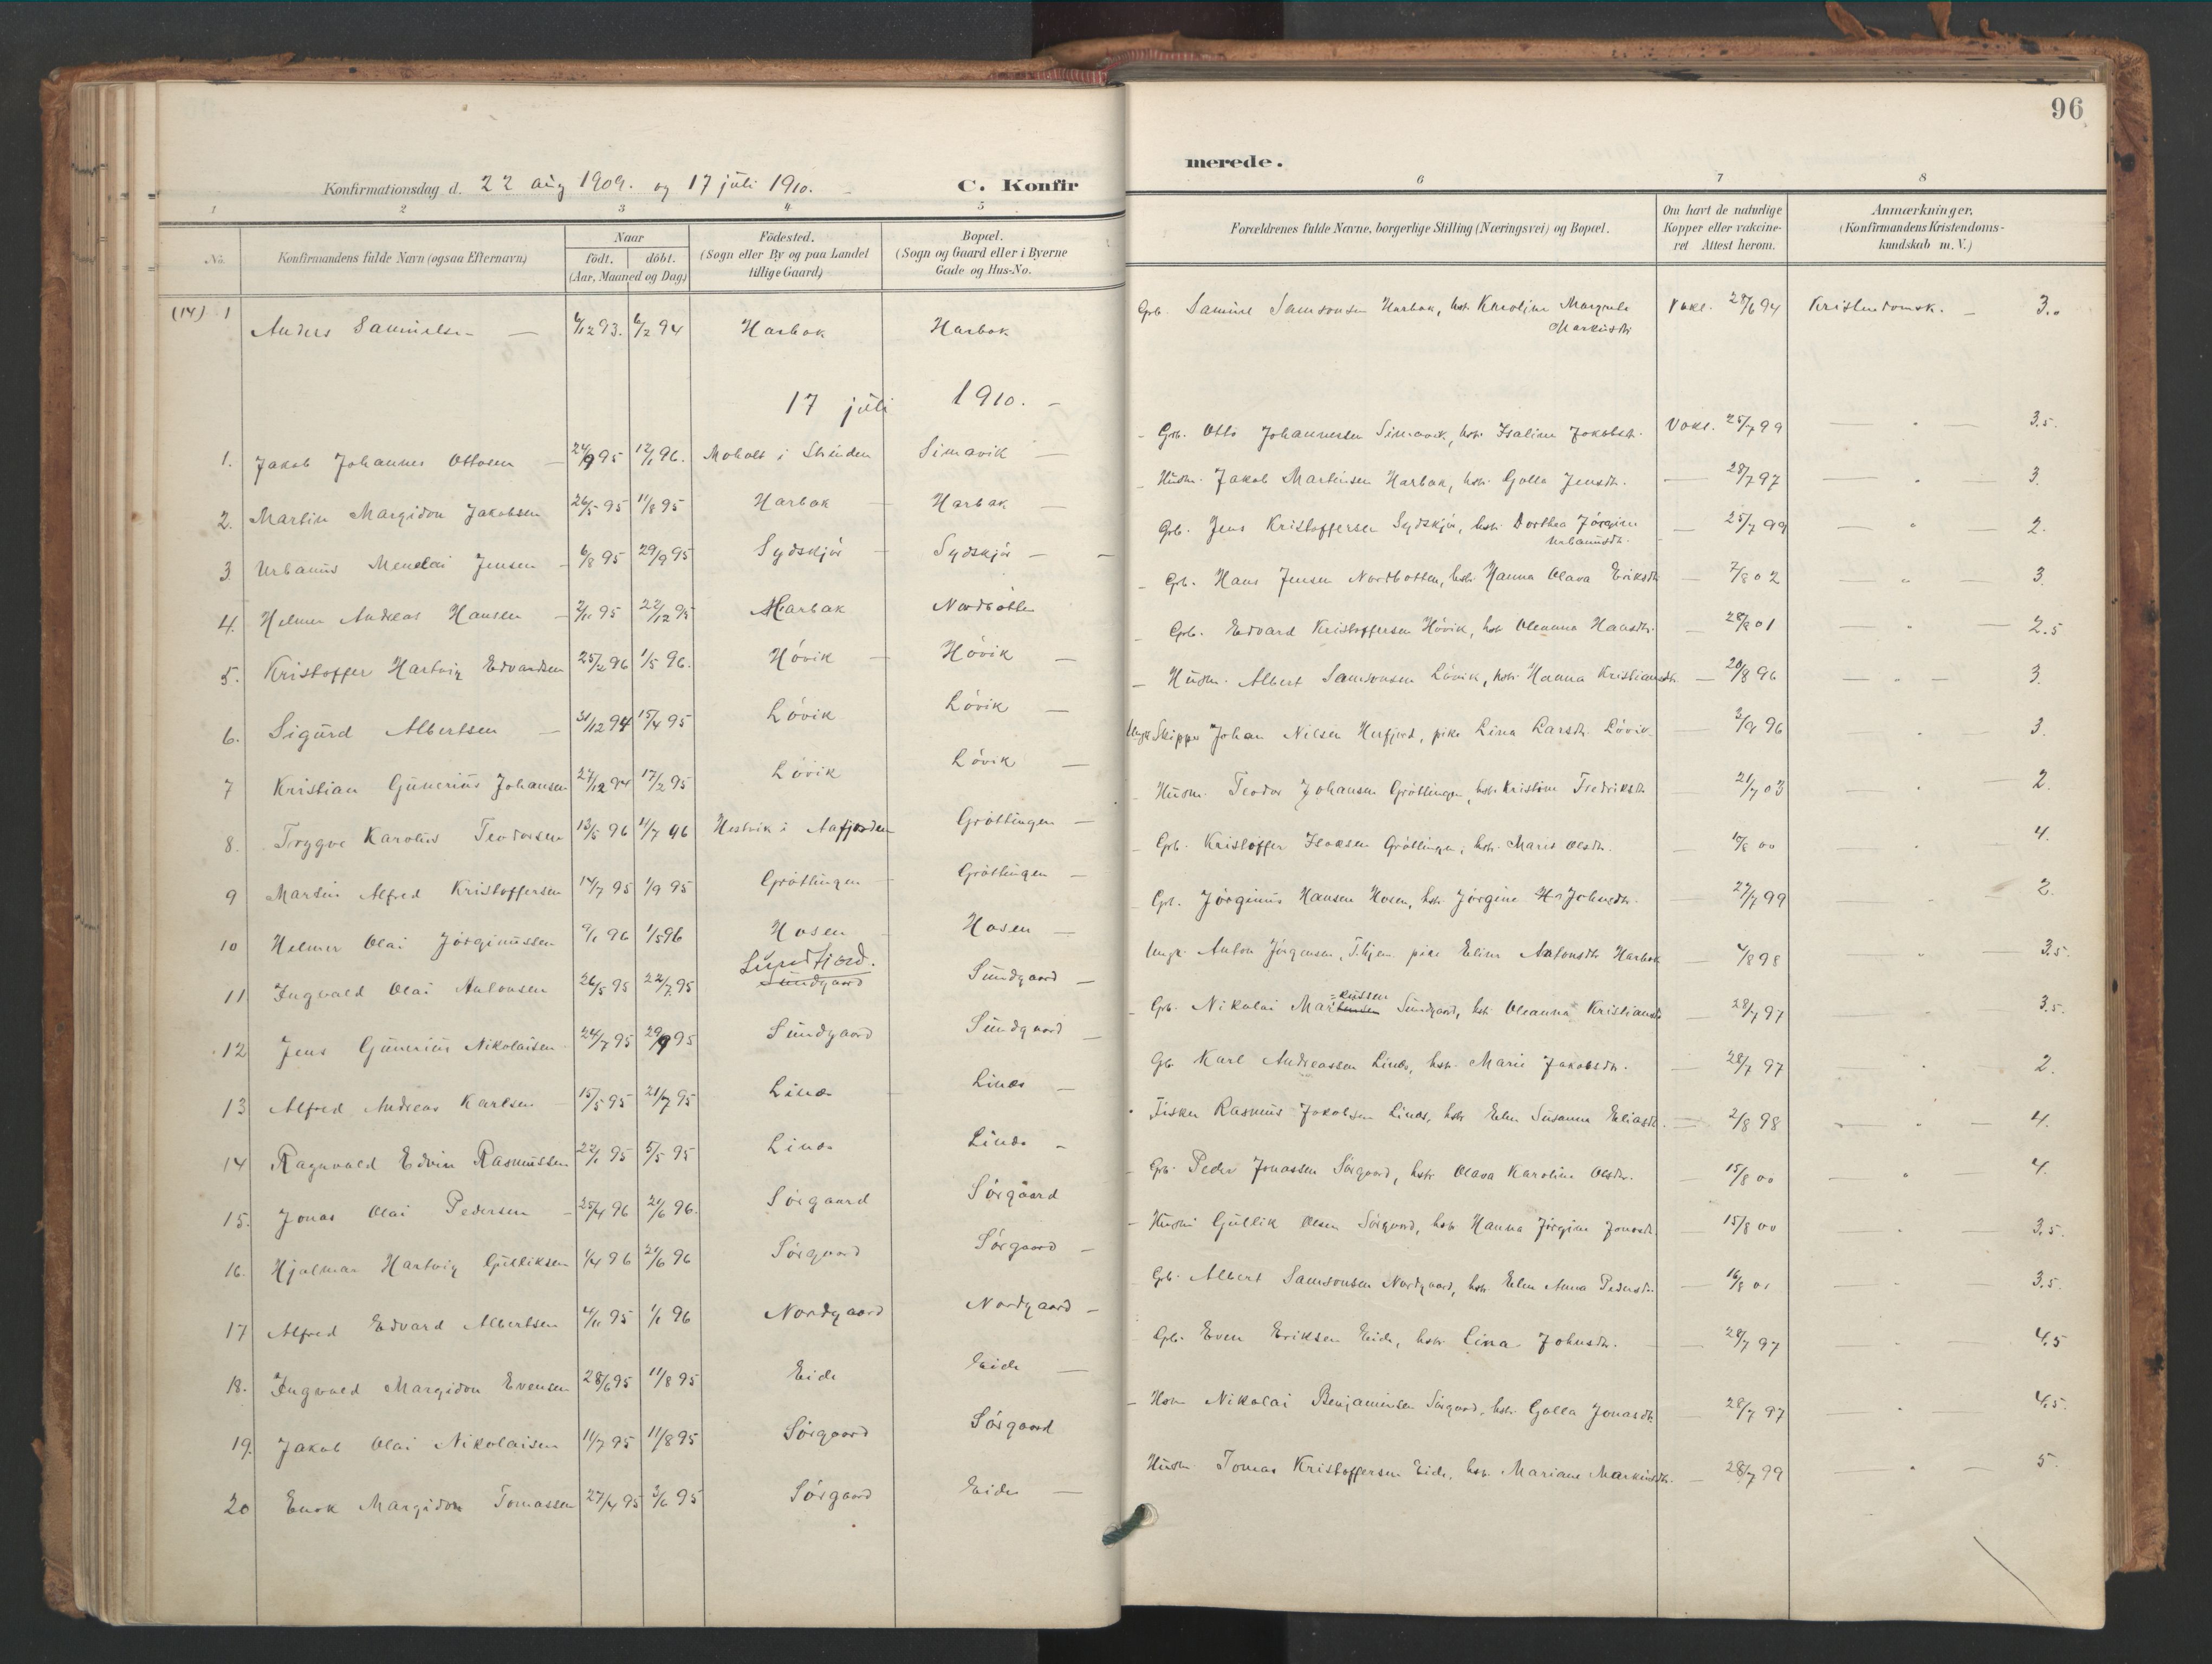 96
merede.
Konfirmationsdag d. 22 aug 1909. og 17 juli 1910. C. Konfir
1 2 3 4 5 6 7 8
No. Konfirmandens fulde Navn (ogsaa Efternavn) Naar födt. döbt. (Aar, Maaned og Dag) Födested. (Sogn eller By og paa Landet tillige Gaard) Bopæl. (Sogn og Gaard eller i Byerne Gade og Hus-No. Forældrenes fulde Navne, borgerlige Stilling (Næringsvei) og Bopæl. Om havt de naturlige Kopper eller vakcineret Attest herom. Anmærkninger. (Konfirmandens Kristendomskundskab m. V.)
(14) 1 Anders Samuelsen — 6/12 93. 6/2 94 Harbak Harbak Grb. Samuel Samsonsen Harbak, hstr. Karoline Margrete Markusdtr Vakc. 28/6 94 Kristendomsk. — 3.
17 juli 1910. —
1. Jakob Johannes Ottosen — 24/9 95 12/1 96. Moholt i Strinden Simavik — Grb. Otto Johannessen Simavik, hstr. Isaline Jakobsdtr. Vakc. 25/7 99 — " — 3.5.
2. Martin Margidon Jakobsen 26/5 95 11/8 95 Harbak — Harbak — Husm. Jakob Martinsen Harbak, hstr. Golla Jensdtr. — 28/7 97 — " — 3.
3 Urbanus Menelai Jensen — 6/8 95 29/9 95 Sydskjör — Sydskjör — Grb. Jens Kristoffersen Sydskjör, hstr. Dorthea Jörgine Urbanusdtr. — 25/7 99 — " — 2.
4. Helmer Andreas Hansen — 2/11 95 22/12 95 Harbak Nordbotten Grb. Hans Jensen Nordbotten, hstr. Hanna Olava Eriksdtr — 7/8 02 — " — 3.
5. Kristoffer Hartvig Edvardsen 25/2 96 1/5 96. Hövik — Hövik — Grb. Edvard Kristoffersen Hövik, hstr Oleanna Hansdtr. — 28/8 01 — " — 2.5
6. Sigurd Albertsen — 31/12 94 15/4 95 Lövik Lövik — Husm. Albert Samsonsen Lövik, hstr. Hanna Kristiansdtr. — 20/8 96 — " — 3.
7 Kristian Gunerius Johansen 27/12 94 17/2 95 Lövik Lövik — Ungk. Skipper Johan Nilsen Herfjord, pike Lina Larsdtr. Lövik. — 3/9 96 " — 3.
8. Trygve Karolus Teodorsen 13/5 96 11/7 96 Hestvik i Aafjorden Gröttingen — Husm. Teodor Johansen Gröttingen, hstr. Kristine Fredriksdtr. — 21/7 03 — 2.
9 Martin Alfred Kristoffersen 14/7 95 1/9 95 Gröttingen — Gröttingen — Grb. Kristoffer Isaksen Gröttingen, hstr. Maret Olsdtr. — 00 " — 4.
10 Helmer Olai Jörginussen 9/1 96 1/5 96 Hosen Hosen — Grb. Jörginus Hansen Hosen, hstr. Jörgine Johnsdtr. — 27/7 99 " — 2.
11 Ingvald Olai Antonsen 26/5 95 22/7 95 Lundfjord. Sundgaard Sundgaard — Ungk. Anton Jörgensen, pike Eline Antonsdtr Harbak — 4/8 98 " — 3.5.
12 Jens Gunerius Nikolaisen 24/7 95 29/9 95 Sundgaard Sundgaard — Grb. Nikolai Martinsen -kussen Sundgaard, hstr. Oleanna Kristiansdtr — 28/7 97 " 3.5.
13 Alfred Andreas Karlsen — 15/5 95 21/7 95 Linæs — Linæs — Gb. Karl Andreassen Linæs, hstr. Marie Jakobsdtr. — 28/7 97 " — 2.
14 Ragnvald Edvin Rasmussen 22/1 95 5/5 95 Linæs Linæs — Fisker Rasmus Jakobsen Linæs, hstr Elen Susanna Eliasdtr. — 2/8 98 " — 4.
15. Jonas Olai Pedersen — 25/4 96 21/6 96. Sörgaard Sörgaard Grb. Peder Jonassen Sörgaard, hstr. Olava Karoline Olsdtr. — 15/8 00 " 4.
16. Hjalmar Hartvig Gulliksen 1/4 96 21/6 96 Sörgaard Sörgaard — Husm. Gullik Olsen Sörgaard, hstr Hanna Jörgine Jonasdtr. 15/8 00 — " — 3.5.
17 Alfred Edvard Albertsen 4/11 95 1/1 96 Nordgaard Nordgaard — Grb. Albert Samsonsen Nordgaard, hstr. Elen Anna Pedersdtr. — 16/8 01 — " — 3.5.
18. Ingvald Margidon Evensen 28/6 95 11/8 95 Eide Eide — Grb. Even Eriksen Eide, hstr. Lina Johnsdtr. — 28/7 97 — " — 4.5
19. Jakob Olai Nikolaisen 11/7 95 11/8 95 Sörgaard Sörgaard Hsm Nikolai Benjaminsen Sörgaard, hstr. Golla Jonasdtr. 28/7 97 — " — 4.5.
20 Enok Margidon Tomassen 27/4 95 3/6 95 Sörgaard Eide — Husm. Tomas Kristoffersen Eide, hstr. Mariane Markusdtr. — 28/7 99 — " — 5.